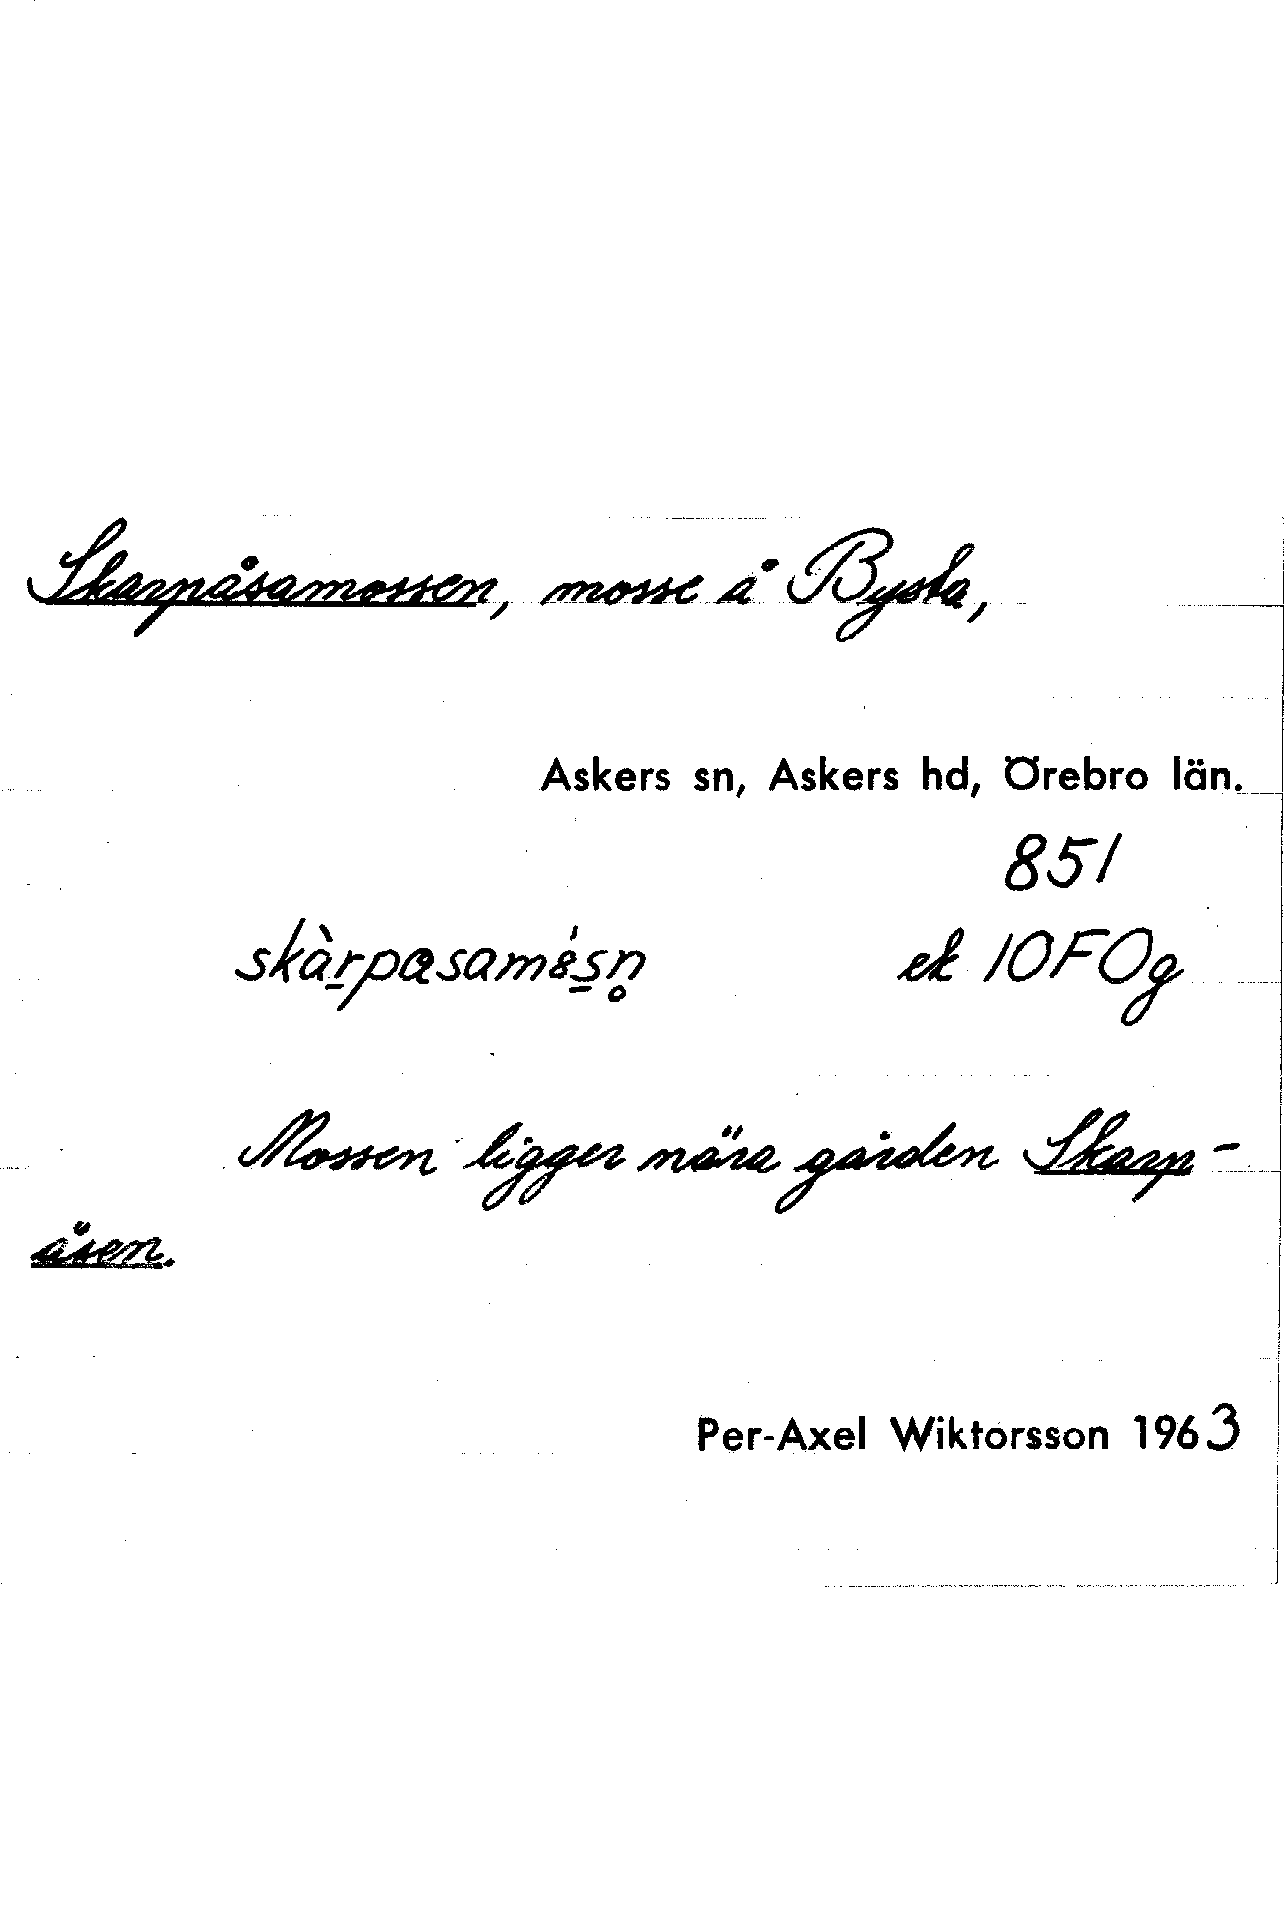 Skarpåsamossen, mosse å Bysta,
Askers sn, Askers hd, Örebro län.
851
skàrpasamésn̥ ek 10FOg
Mossen ligger nära gården Skarp-
åsen.
Per-Axel Wiktorsson 1963